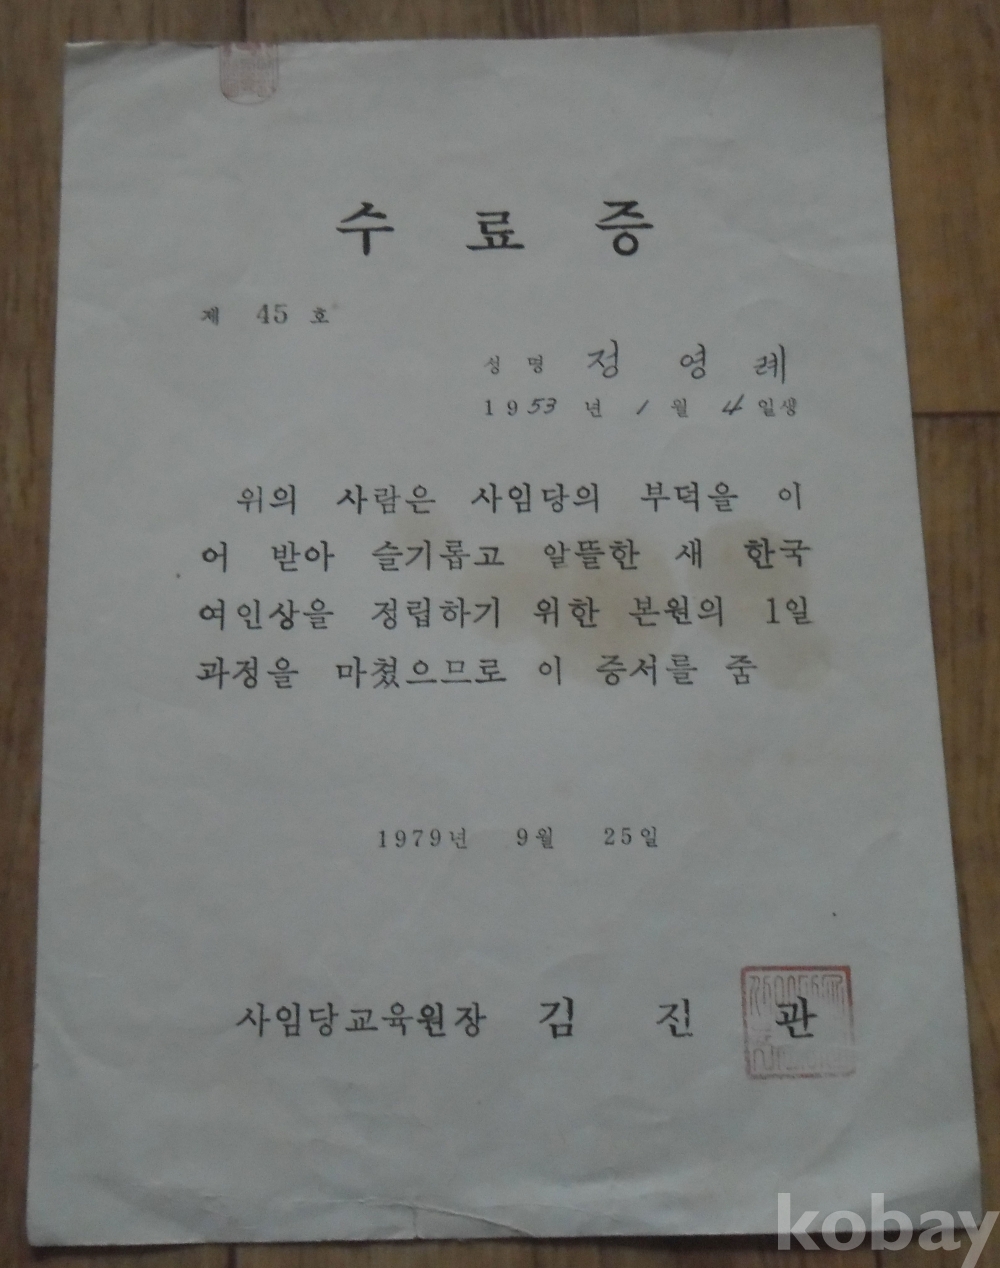 수 료 증
제 45 호
성 명 정 영 례
1953 년 1 월 4 일생
위의 사람은 사임당의 부덕을 이
어 받아 슬기롭고 알뜰한 새 한국
여인상을 정립하기 위한 본원의 1일
과정을 마쳤으므로 이 증서를 줌
1979년 9월 25일
사임당교육원장 김 진 관
kobay